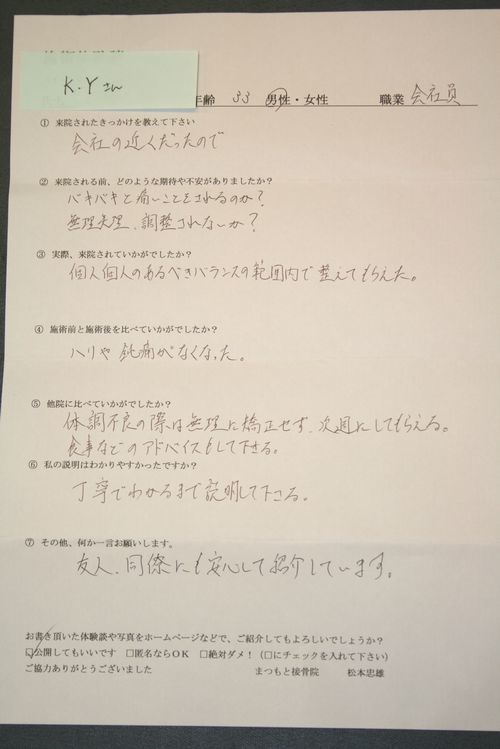 K.Yさん
年齢 33 男性・女性 職業 会社員
① 来院されたきっかけを教えて下さい
会社の近くだったので
② 来院される前、どのような期待や不安がありましたか？
バキバキと痛いことをされるのか？
無理矢理、調整されないか？
③ 実際、来院されていかがでしたか？
個人個人のあるべきバランスの範囲内で整えてもらえた。
④ 施術前と施術後を比べていかがでしたか？
ハリや鈍痛がなくなった。
⑤ 他院に比べていかがでしたか？
体調不良の際は無理に矯正せず、次週にしてもらえる。
食事などのアドバイスもして下さる。
⑥ 私の説明はわかりやすかったですか？
丁寧でわかるまで説明して下さる。
⑦ その他、何か一言お願いします。
友人、同僚にも安心して紹介しています。
お書き頂いた体験談や写真をホームページなどで、ご紹介してもよろしいでしょうか？
☑公開してもいいです □匿名ならOK □絶対ダメ！（□にチェックを入れて下さい）
ご協力ありがとうございました まつもと接骨院 松本忠雄